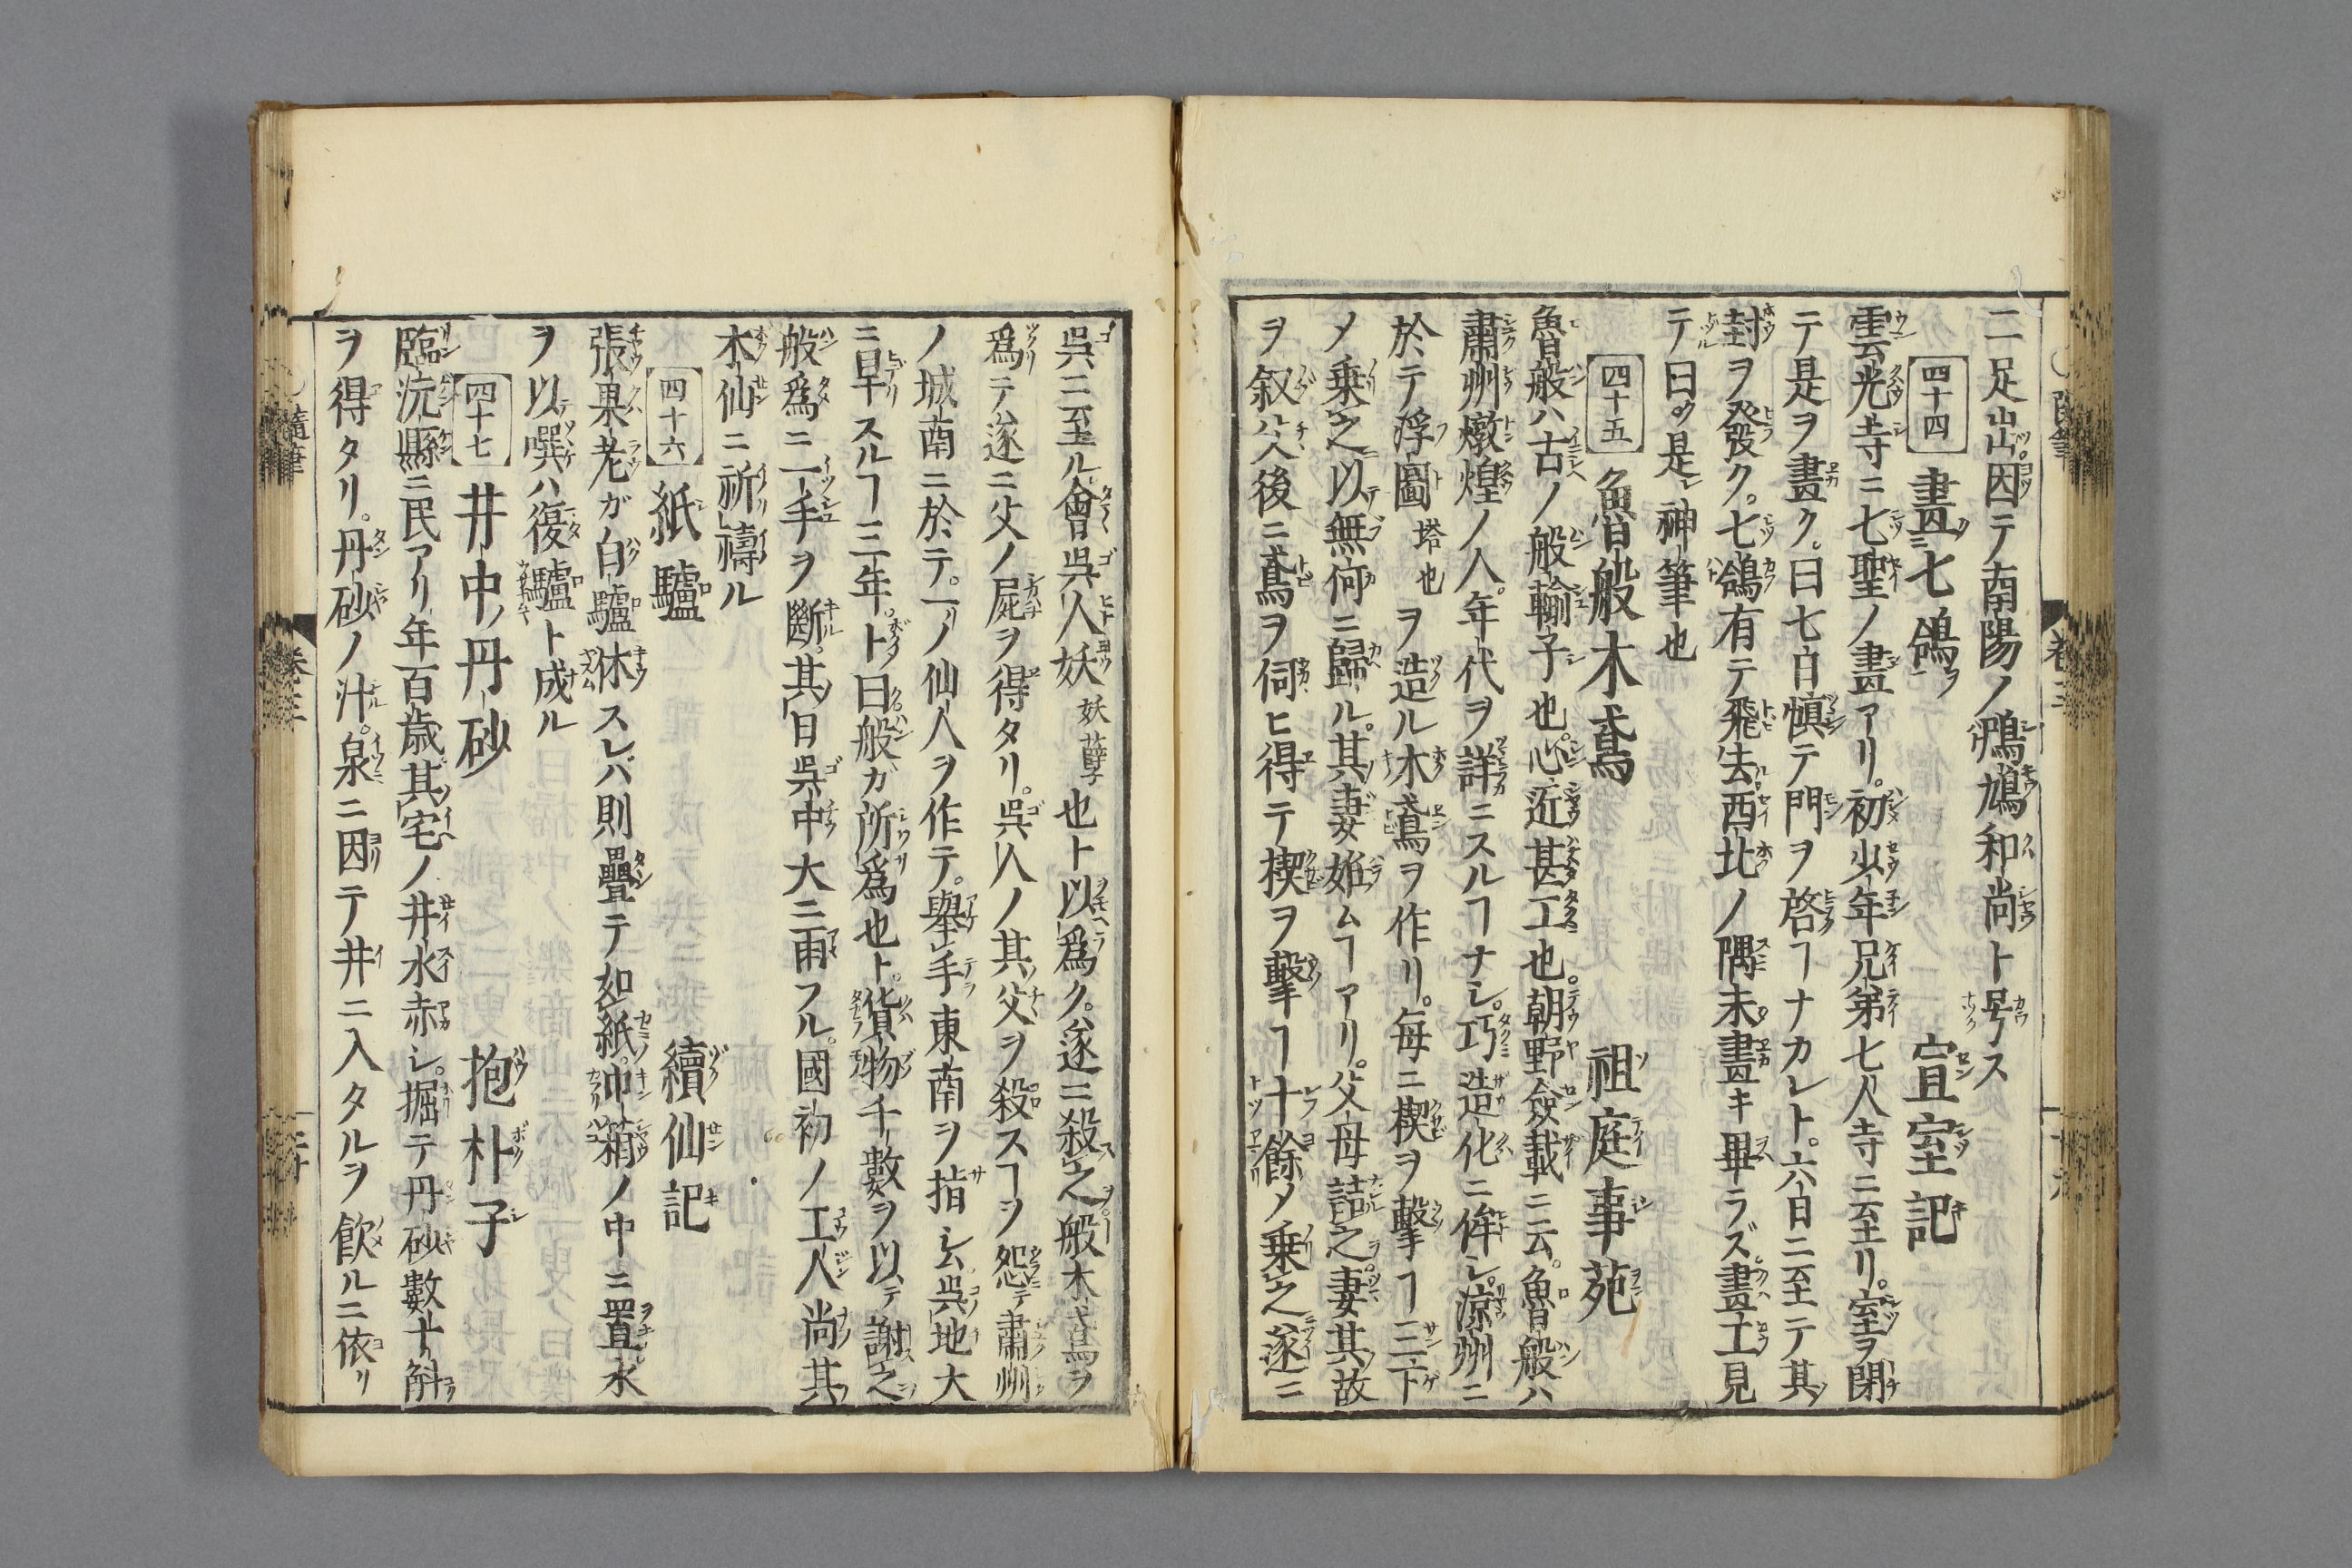 二足出。因テ南陽ノ鴉鳩和尚ト号ス
四十四 畫七鴿 宣室記
雲光寺ニ七聖ノ畫アリ。初少年兄弟七人寺ニ至リ。室ヲ閉
テ是ヲ畫ク。曰七日慎テ門ヲ啓ヿナカレト。六日ニ至テ其
封ヲ發ク。七鴿有テ飛去西北ノ隅未畫キ畢ラズ畫工見
テ曰ク是神筆也
四十五 魯般木鳶 祖庭事苑
魯般ハ古ノ般輸子也。心近甚工也。朝野僉載ニ云。魯般ハ
肅州燉煌ノ人。年代ヲ詳ニスルヿナシ。巧造化ニ侔シ。涼州ニ
於テ浮圖塔也ヲ造ル木鳶ヲ作リ。毎ニ楔ヲ擊ヿ三下
〆乗之以無何ニ歸ル。其妻姙ムヿアリ。父母詰之妻其故
ヲ叙父後ニ鳶ヲ伺ヒ得テ楔ヲ擊ヿ十餘〆乗之遂ニ
呉ニ至ル會呉人妖妖孽也ト以爲ク。遂ニ殺之般木鳶ヲ
爲テ遂ニ父ノ屍ヲ得タリ。呉人ノ其父ヲ殺スヿヲ怨テ肅州
ノ城南ニ於テ。一ノ仙人ヲ作テ。舉手東南ヲ指シム呉地大
ニ旱スルヿ三年。ト曰般カ所爲也ト。貨物千數ヲ以テ謝之
般爲ニ一手ヲ斷。其日呉中大ニ雨フル。國初ノ工人尚其
木仙ニ祈禱ル
四十六 紙驢 續仙記
張果老ガ白驢休スレバ則疊テ如紙。巾箱ノ中ニ置水
ヲ以噀ハ復驢ト成ル
四十七 井中ノ丹砂 抱朴子
臨沅縣ニ民アリ年百歳其宅ノ井水赤シ。掘テ丹砂數十斛
ヲ得タリ。丹砂ノ汁。泉ニ因テ井ニ入タルヲ飲ルニ依リ
隨筆 卷三